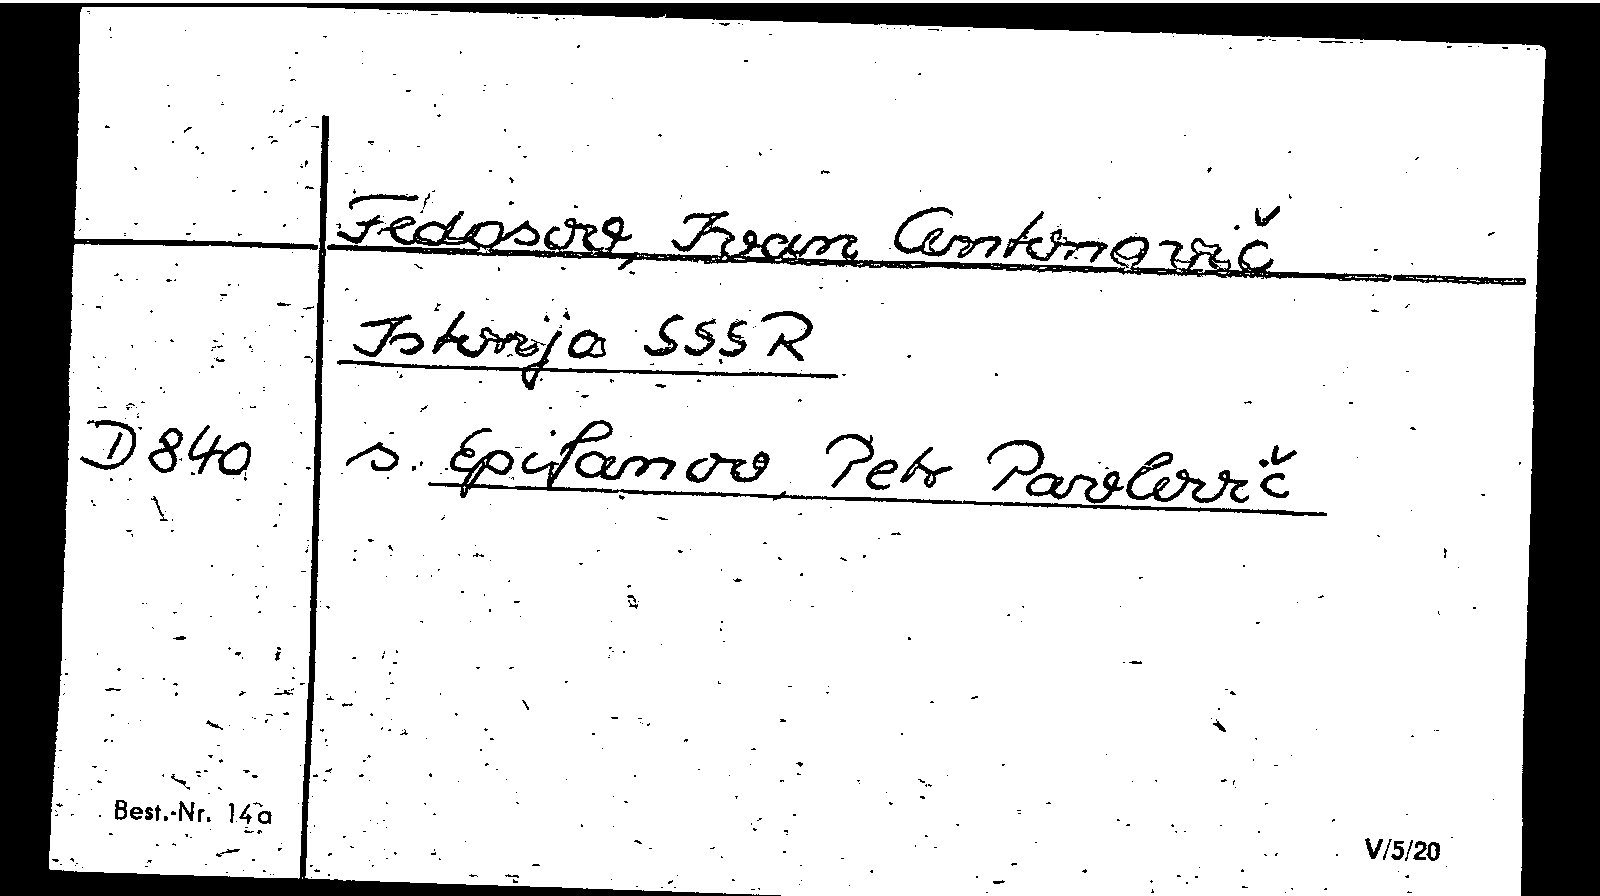 Fedosov, Ivan Antonovič
Istorija SSSR
D 840 s. Epifanov, Petr Pavlovič
Best.-Nr. 14a
V/5/20